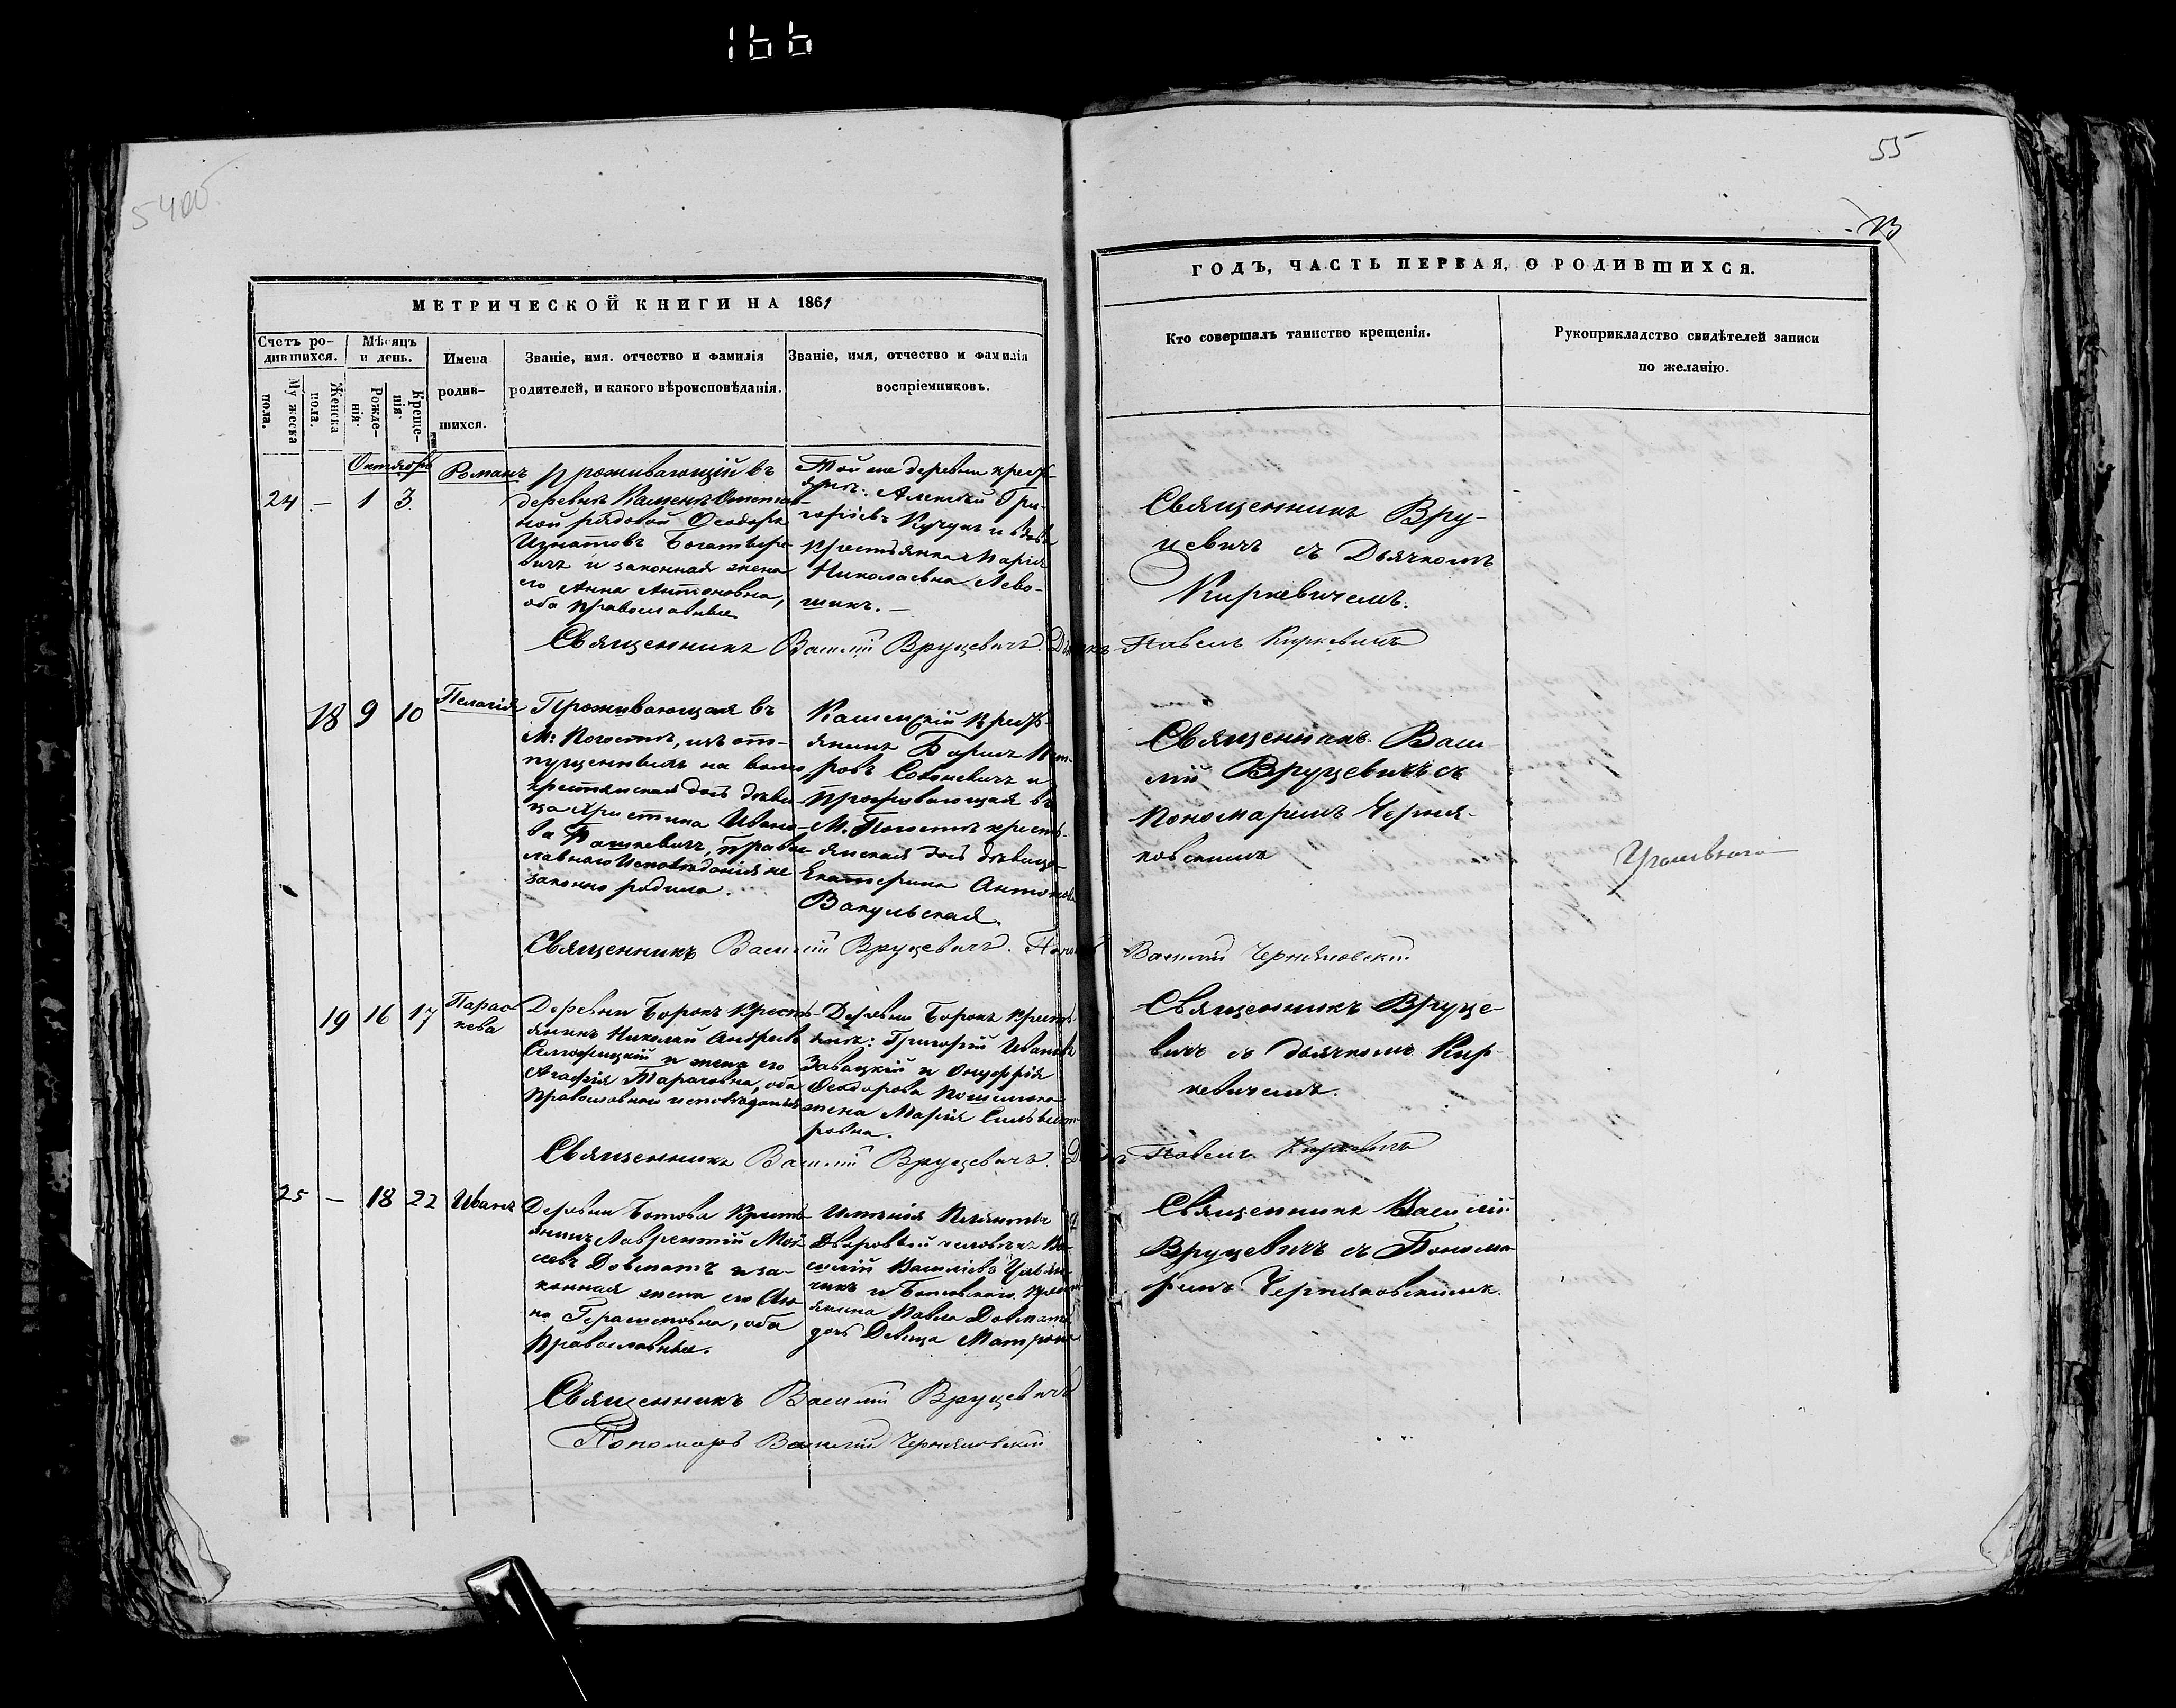 166
54об
55
МЕТРИЧЕСКОЙ КНИГИ НА 1861
Счетъ ро-
дившихся.
Мѣсяцъ
и день.
Мужеска
пола.
Женска
пола.
Рожде-
нія.
Креще-
нія.
Имена
родив-
шихся.
Званіе, имя. отчество и фамилія
родителей, и какого вѣроисповѣданія.
Званіе, имя, отчество и фамилія
воспріемниковъ.
ГОДЪ, ЧАСТЬ ПЕРВАЯ, О РОДИВШИХСЯ.
Кто совершалъ таинство крещенія.
Рукоприкладство свидѣтелей записи
по желанію.
Октябрь
24 — 1 3
Романъ
Проживающій въ
деревнѣ Каменѣ Отстав-
ной рядовой Ѳеодоръ
Игнатовъ Богатыре-
вичъ и законная жена
его Анна Антоновна,
оба православные
Той же деревни крест-
янѣ: Алексѣй Гри-
горіевъ Кучукъ и вдова
крестьянка Марія
Николаевна Лево-
шикъ. —
Священникъ Вру-
цевичъ съ Дьячкомъ
Киркевичемъ.
Священникъ Василій Вруцевичъ. Дьячекъ Павелъ Киркевичъ
18 9 10
Пелагія
Проживающая въ
М: Погостѣ, изъ от-
пущенныхъ на волю
крестьянская дочь дѣви-
ца Христина Ивано-
ва Пашкевичъ, право-
славнаго исповѣданія не
законно родила.
Каменскій крест-
янинъ Борисъ Пет-
ровъ Соboneвичъ и
проживающая въ
М. Погостѣ кресть-
янская дочь дѣвица
Екатерина Антонова
Вакульская.
Священникъ Васи
лій Вруцевичъ съ
Пономаремъ Черня-
ковскимъ
Священникъ Василій Вруцевичъ. Поном Василій Черняковскій
19 16 17
Парас-
кева
Деревни Борокъ Кресть-
янинъ Николай Андреевъ
и жена его
Агафія Тарасовна, оба
Православнаго исповѣданія
Деревни Борокъ кресть-
янѣ: Григорій Ивановъ
Завацкій и Онуфрія
Ѳеодорова
жена Марія Сильвест-
ровна.
Священникъ Вруце-
вичъ съ дьячкомъ Кир-
кевичемъ.
Священникъ Василій Вруцевичъ. Павелъ Киркевичъ
25 — 18 22
Иванъ
Деревни Ботова Кресть-
янинъ Лаврентій Мои-
сеевъ Довматъ и за-
конная жена его Ан-
на Герасимовна, оба
Православные.
Имѣнія
Дворовый человѣкъ Ва-
силій Васильевъ
и Ботовскаго крест-
янина Павла Довмата
дочь Дѣвица Матрона
Священникъ Василій
Вруцевичъ съ Понома-
ремъ Черняковскимъ.
Священникъ Василій Вруцевичъ
Пономарь Василій Черняковскій